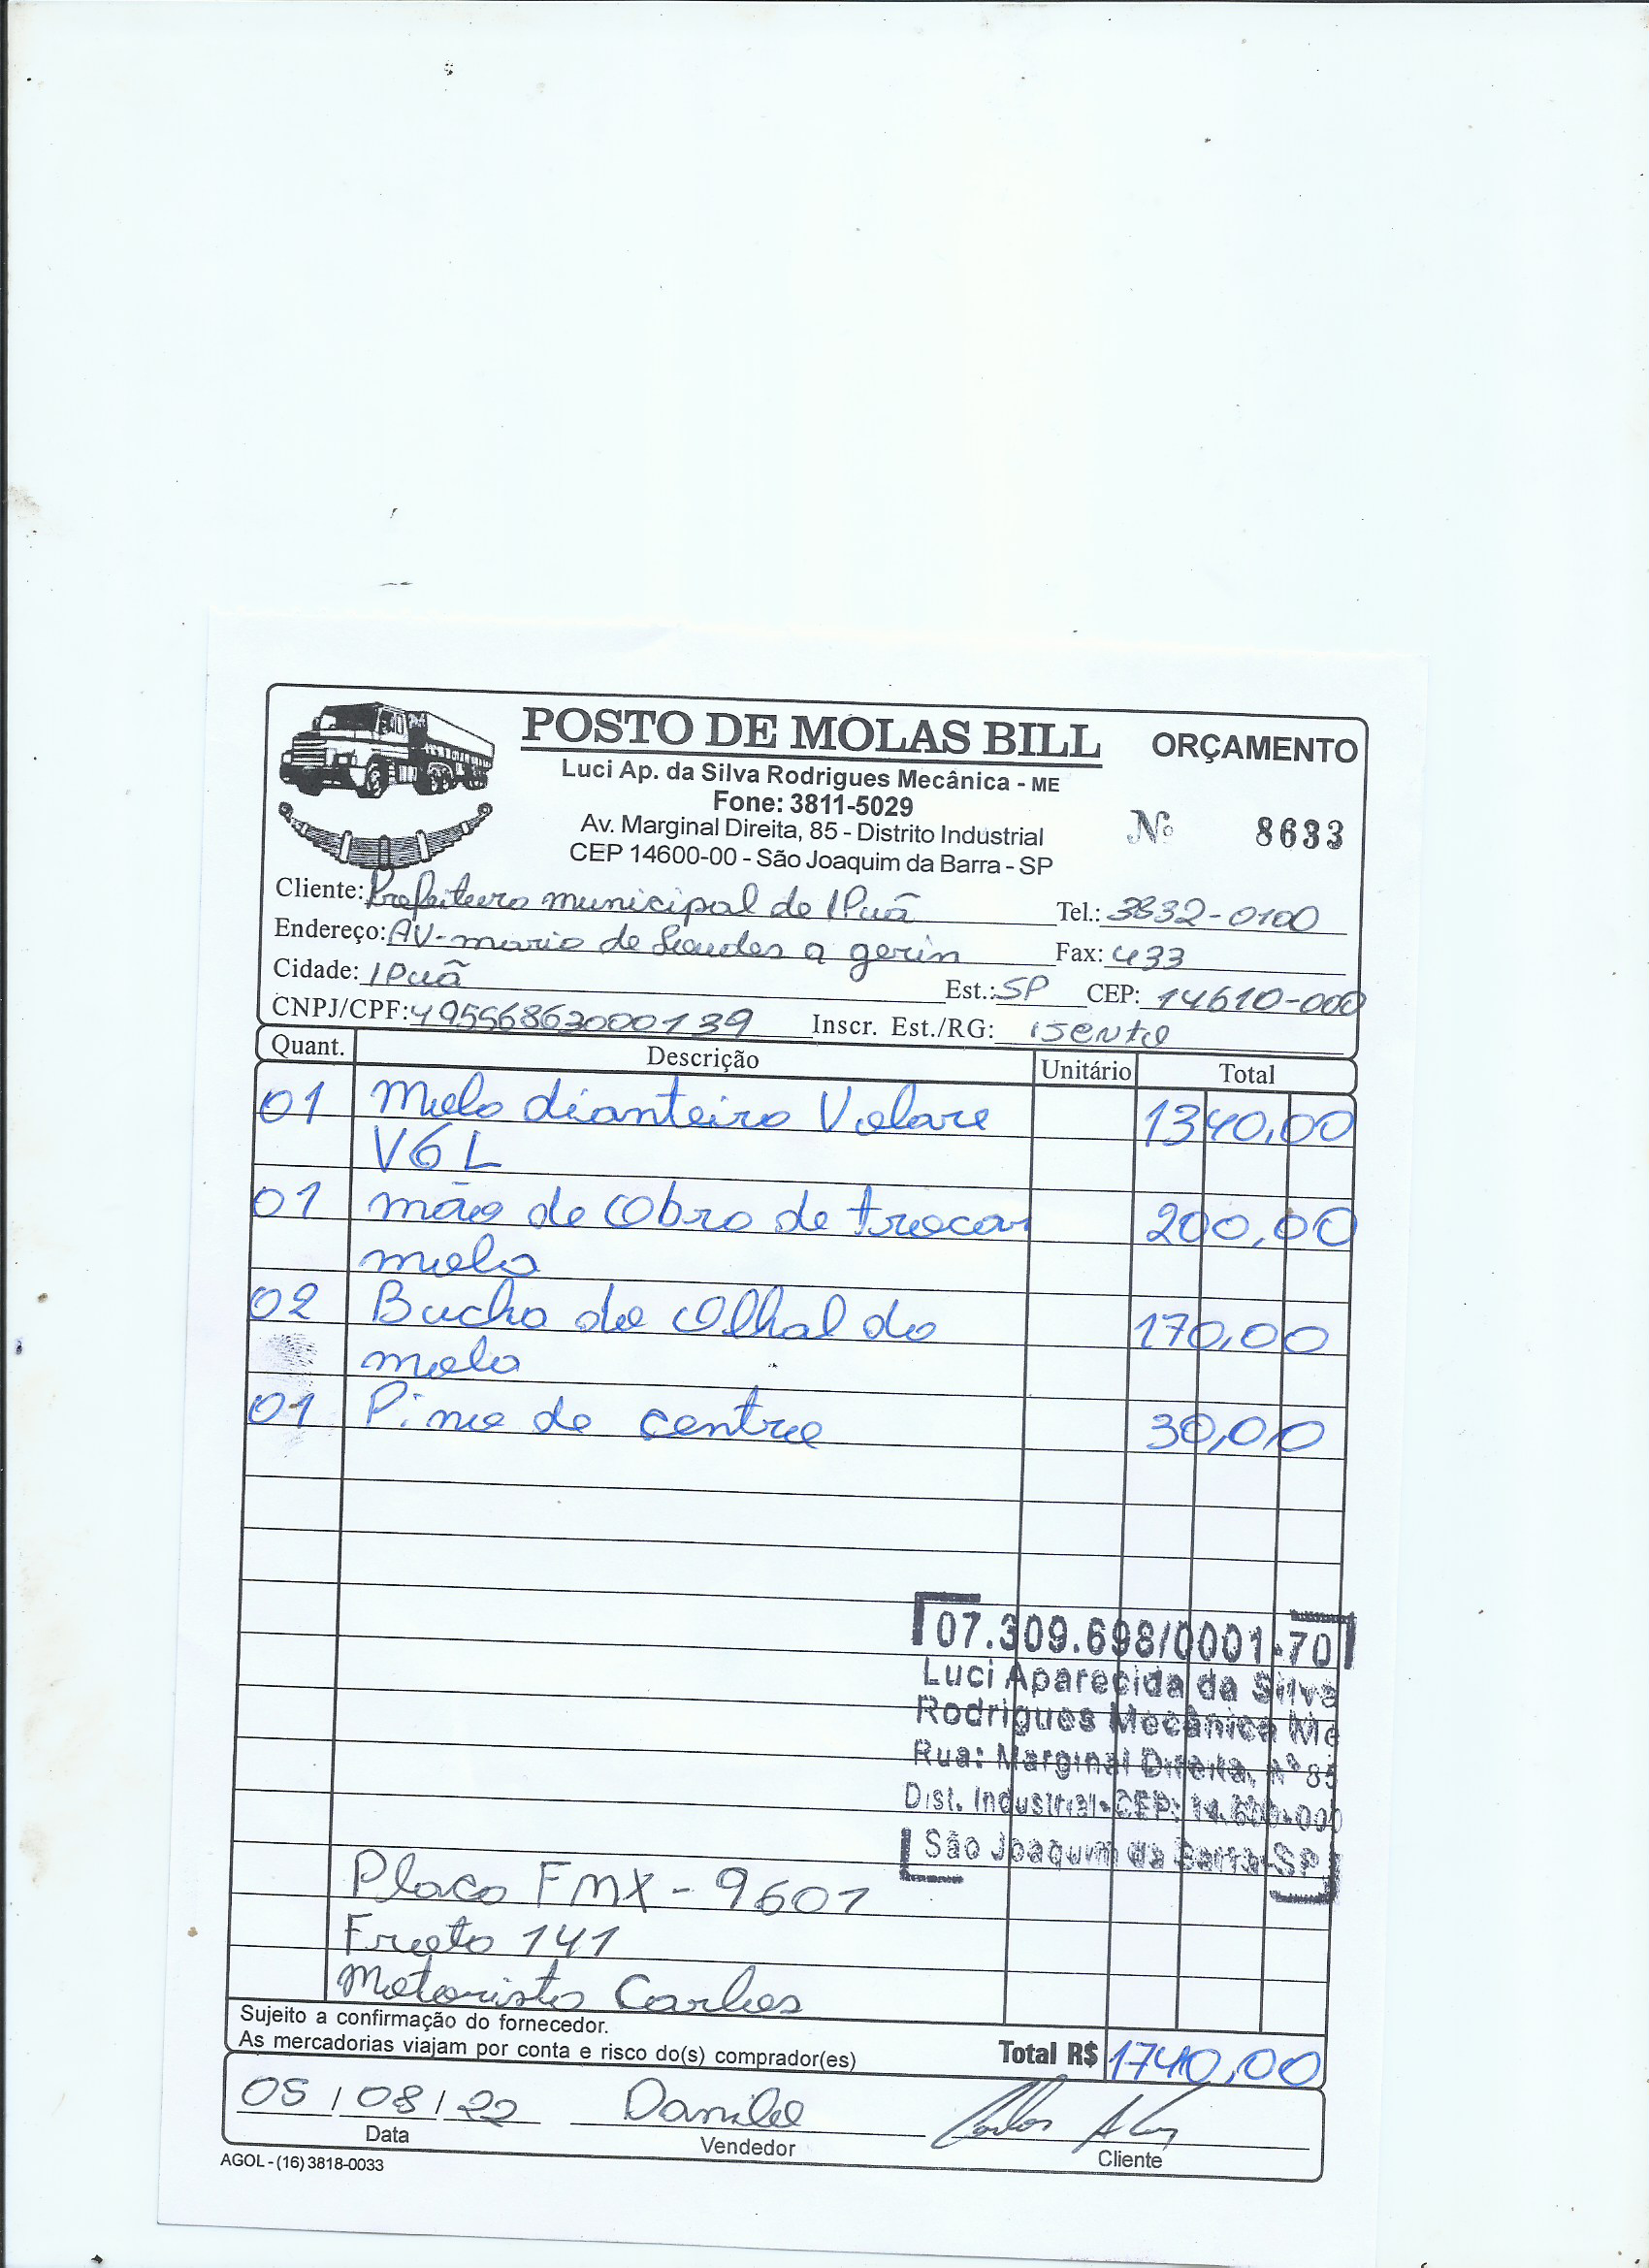 POSTO DE MOLAS BILL ORÇAMENTO
Luci Ap. da Silva Rodrigues Mecânica - ME
Fone: 3811-5029
Av. Marginal Direita, 85 - Distrito Industrial
CEP 14600-00 - São Joaquim da Barra - SP
Nº 8633
Cliente: Prefeitura municipal de IPuã Tel.: 3832-0100
Endereço: AV- maria de a gerin Fax: 433
Cidade: IPuã Est.: SP CEP: 14610-000
CNPJ/CPF: 49556863000139 Inscr. Est./RG: isento
Quant. Descrição Unitário Total
01 Mola dianteira Volare 1340,00
V6L
01 mão de Obra de trocar 200,00
mola
02 Bucha de Olhal da 170,00
mola
01 Pino de centro 30,00
07.309.698/0001-70
Luci Aparecida da Silva
Rodrigues Mecânica Me
Rua: Marginal Direita, Nº 85
Dist. Industrial-CEP: 14.600-000
São Joaquim da Barra-SP
Placa FMX-9601
Frota 141
Motorista Carlos
Sujeito a confirmação do fornecedor.
As mercadorias viajam por conta e risco do(s) comprador(es) Total R$ 1740,00
05/08/22 Danilo Carlos
Data Vendedor Cliente
AGOL - (16) 3818-0033